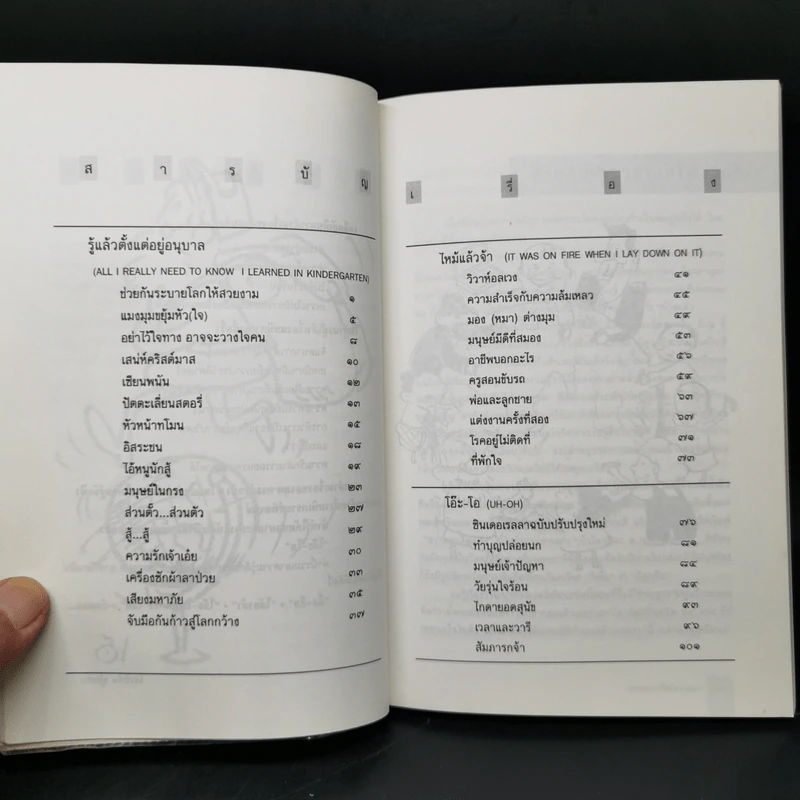 สารบัญ
รู้แล้วตั้งแต่อยู่อนุบาล
(ALL I REALLY NEED TO KNOW I LEARNED IN KINDERGARTEN)
ช่วยกันระบายโลกให้สวยงาม ๑
แมงมุมขยุ้มหัว(ใจ) ๕
อย่าไว้ใจทาง อาจจะวางใจคน ๘
เสน่ห์คริสต์มาส ๑๐
เซียนพนัน ๑๒
ปัตตะเลี่ยนสตอรี่ ๑๓
หัวหน้าทโมน ๑๕
อิสระชน ๑๘
ไอ้หนูนักสู้ ๑๙
มนุษย์ในกรง ๒๓
ส่วนตั๊ว...ส่วนตัว ๒๗
สู้...สู้ ๒๙
ความรักเจ้าเอ๋ย ๓๐
เครื่องซักผ้าลาป่วย ๓๓
เสียงมหาภัย ๓๕
จับมือกันก้าวสู่โลกกว้าง ๓๗
เรื่อง
ไหม้แล้วจ้า (IT WAS ON FIRE WHEN I LAY DOWN ON IT)
วิวาห์อลเวง ๔๑
ความสำเร็จกับความล้มเหลว ๔๕
มอง (หมา) ต่างมุม ๔๙
มนุษย์มีดีที่สมอง ๕๓
อาชีพบอกอะไร ๕๖
ครูสอนขับรถ ๕๙
พ่อและลูกชาย ๖๓
แต่งงานครั้งที่สอง ๖๗
โรคอยู่ไม่ติดที่ ๗๑
ที่พักใจ ๗๓
โอ๊ะ-โอ (UH-OH)
ซินเดอเรลลาฉบับปรับปรุงใหม่ ๗๖
ทำบุญปล่อยนก ๘๑
มนุษย์เจ้าปัญหา ๘๔
วัยรุ่นใจร้อน ๘๙
ไกดายอดสุนัข ๙๓
เวลาและวารี ๙๖
สัมภารกจ้า ๑๐๑